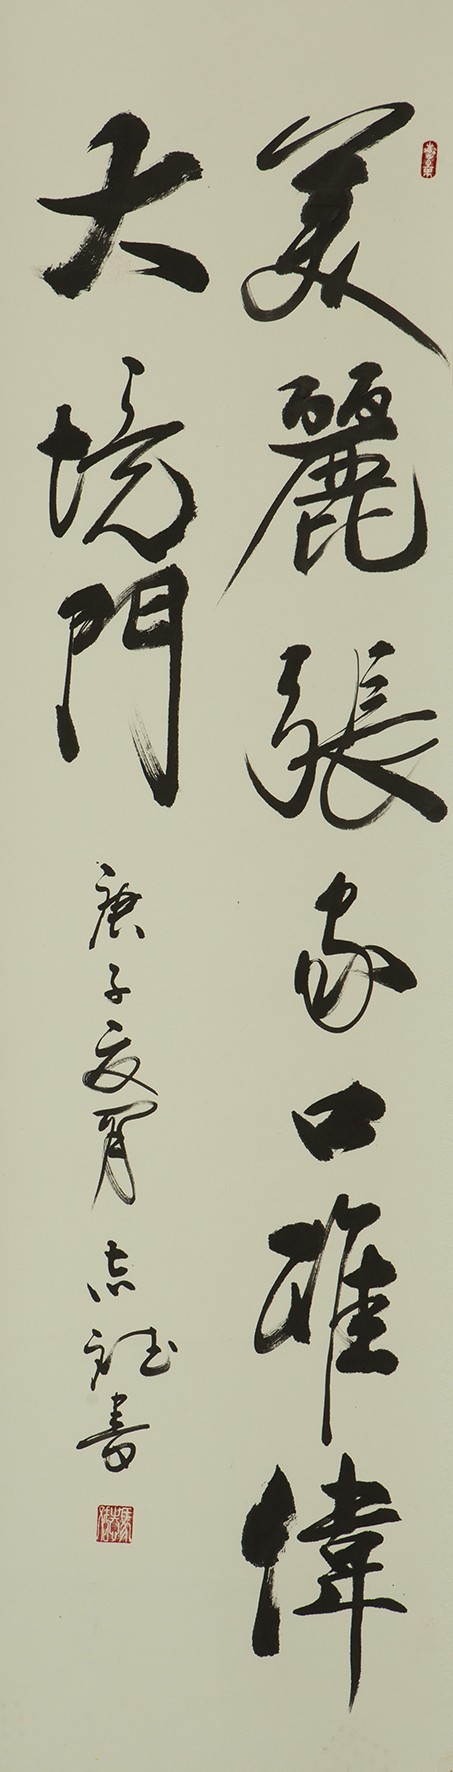 美麗張家口雄偉
大境門
庚子夏月志誌書